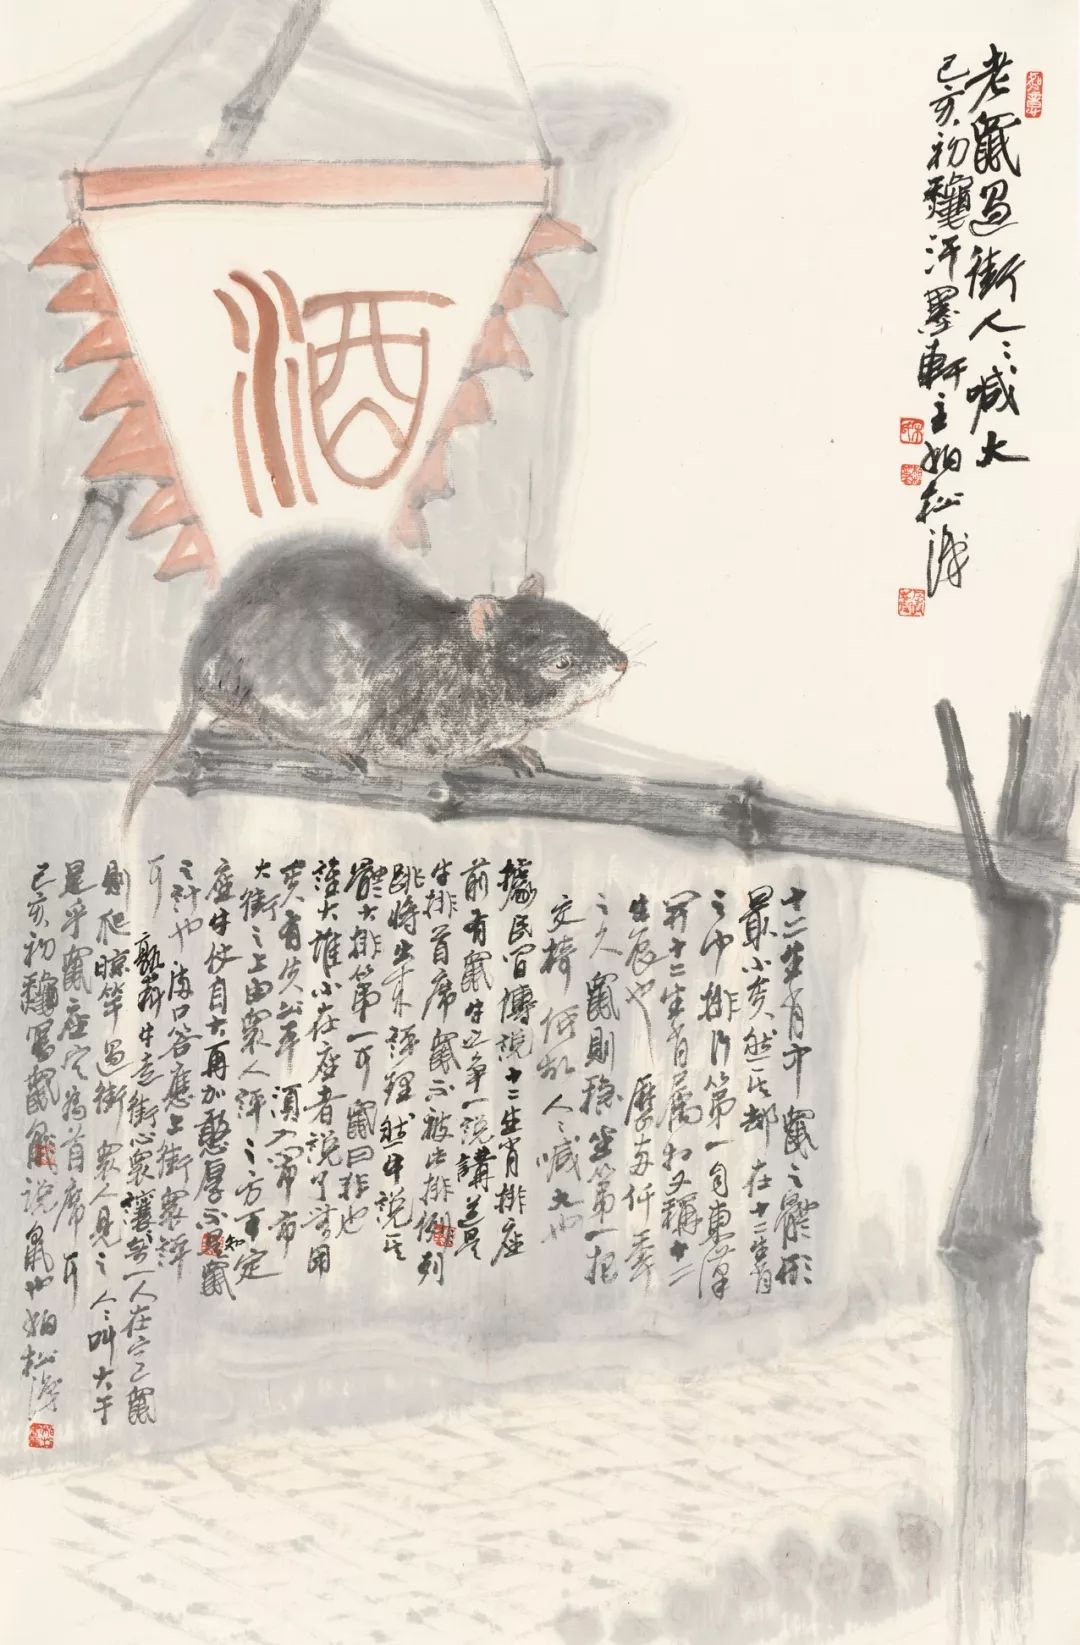 老鼠過街人人喊大
己亥初龝汗墨軒主柏松識
酒
十二生肖中鼠之體形
最小矣然其却在十二生肖
之中排行第一自東漢
開十二生肖屬相又稱十二
生辰也歷每仟年
之久鼠則穩坐第一把
交椅何故人人喊大也
據民間傳説十二生肖排座
前有鼠牛之爭一説講道是
牛排首席鼠不被此排例列
跳將出來評理然牛説其
體大排第一可鼠曰非也
誰大誰小在座者説了不用
矣有失公平須入鬧市
大街之上由衆人評之方可定
座牛仗自大再加憨厚不知鼠
之計也滿口答應上街衆評
可
孰料牛走街心衆讓無一人在意鼠
則爬晾竿過街衆人見之人人叫大于
是乎鼠座定為首席可
己亥初龝寫鼠説鼠也柏松識